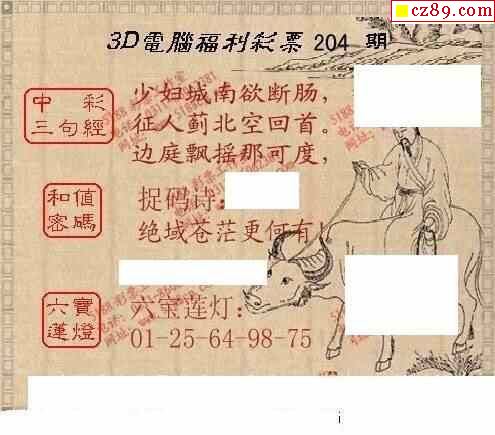 cz89.com
3D電腦福利彩票 204 期
中彩
三句經
少妇城南欲断肠,
征人蓟北空回首。
边庭飘摇那可度,
和值
密碼
捉码诗:
绝域苍茫更何有!
六寶
蓮燈
六宝莲灯:
01-25-64-98-75